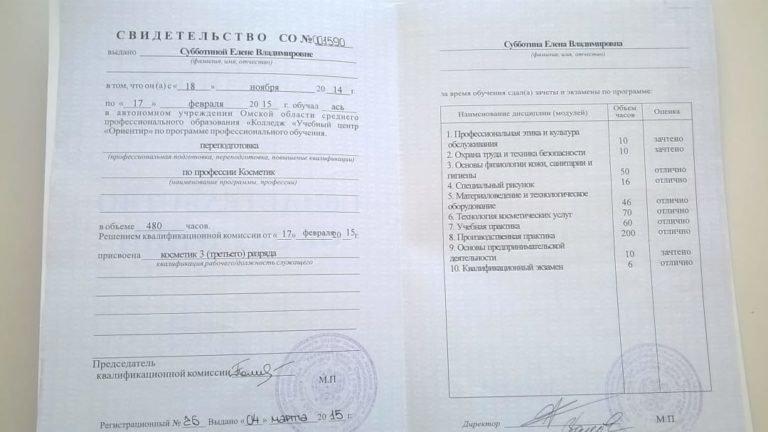 СВИДЕТЕЛЬСТВО СО №001590
выдано Субботиной Елене Владимировне
(фамилия, имя, отчество)
в том, что он (а) с « 18 » ноября 20 14 г.
по « 17 » февраля 20 15 г. обучал ась
в автономном учреждении Омской области среднего
профессионального образования «Колледж «Учебный центр
«Ориентир» по программе профессионального обучения.
переподготовка
(профессиональная подготовка, переподготовка, повышение квалификации)
по профессии Косметик
(наименование программы, профессии)
в объеме 480 часов.
Решением квалификационной комиссии от « 17» февраля 20 15г.
присвоена косметик 3 (третьего) разряда
квалификация рабочего/должность служащего
Председатель
квалификационной комиссии
М.П
Регистрационный № 36 Выдано «04 » марта 20 15 г.
Субботина Елена Владимировна
(фамилия, имя, отчество)
за время обучения сдал(а) зачеты и экзамены по программе:
Наименование дисциплин (модулей) Объем часов Оценка
1. Профессиональная этика и культура
обслуживания 10 зачтено
2. Охрана труда и техника безопасности 10 зачтено
3. Основы физиологии кожи, санитарии и
гигиены 50 отлично
4. Специальный рисунок 16 отлично
5. Материаловедение и технологическое
оборудование 46 отлично
6. Технология косметических услуг 70 отлично
7. Учебная практика 60 отлично
8. Производственная практика 200 отлично
9. Основы предпринимательской
деятельности 10 зачтено
10. Квалификационный экзамен 6 отлично
Директор
М.П